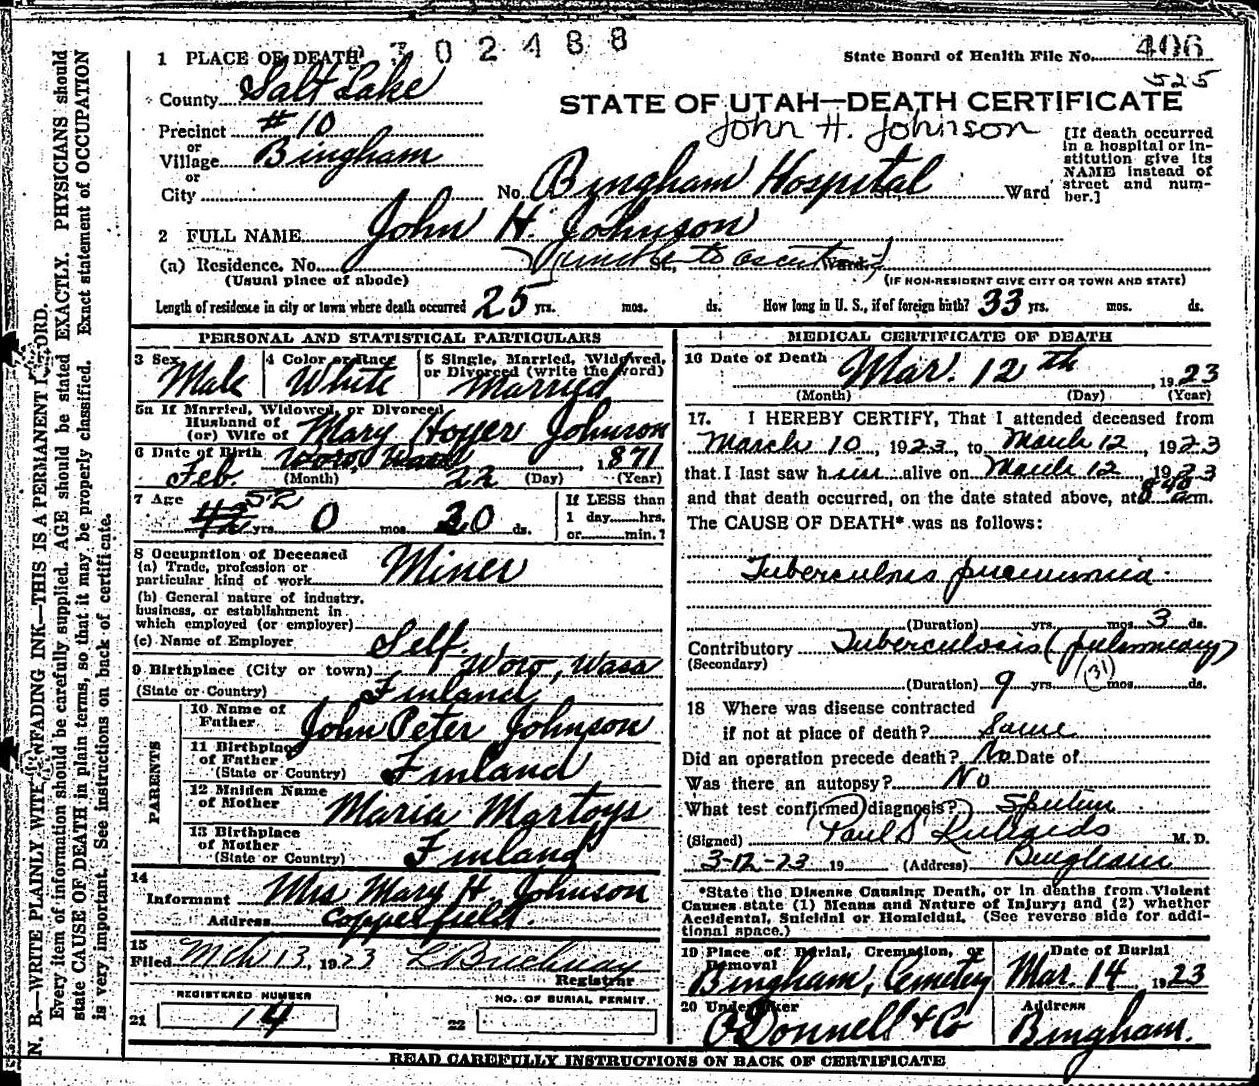 1 PLACE OF DEATH 302488 State Board of Health File No. 406
525
County Salt Lake
STATE OF UTAH—DEATH CERTIFICATE
John H. Johnson
Precinct #10
or
Village Bingham
or
City
No. Bingham Hospital St., Ward
[If death occurred in a hospital or in-
stitution give its
NAME instead of
street and num-
ber.]
2 FULL NAME John H. Johnson
(a) Residence. No. St., Ward
(Usual place of abode) (IF NON-RESIDENT GIVE CITY OR TOWN AND STATE)
Length of residence in city or town where death occurred 25 yrs. mos. ds. How long in U. S., if of foreign birth? 33 yrs. mos. ds.
PERSONAL AND STATISTICAL PARTICULARS
3 Sex Male
4 Color or Race White
5 Single, Married, Widowed, or Divorced (write the word) Married
5a If Married, Widowed, or Divorced
Husband of
(or) Wife of Mary Hoyer Johnson
6 Date of Birth Woro, Wasa
Feb. (Month) 22 (Day), 1871 (Year)
7 Age 42 52 yrs. 0 mos. 20 ds.
If LESS than
1 day......hrs.
or......min.?
8 Occupation of Deceased
(a) Trade, profession or
particular kind of work Miner
(b) General nature of industry,
business, or establishment in
which employed (or employer)
(c) Name of Employer Self.
9 Birthplace (City or town) Woro, Wasa
(State or Country) Finland
PARENTS
10 Name of
Father John Peter Johnson
11 Birthplace
of Father
(State or Country) Finland
12 Maiden Name
of Mother Maria Martoys
13 Birthplace
of Mother
(State or Country) Finland
14
Informant Mrs Mary H. Johnson
Address Copperfield.
15
Filed Mch 13, 1923
Registrar
REGISTERED NUMBER
21 14
NO. OF BURIAL PERMIT.
22
MEDICAL CERTIFICATE OF DEATH
16 Date of Death Mar. 12th, 1923
(Month) (Day) (Year)
17. I HEREBY CERTIFY, That I attended deceased from
March 10, 1923, to March 12, 1923
that I last saw him alive on March 12, 1923
and that death occurred, on the date stated above, at 8 40 a.m.
The CAUSE OF DEATH* was as follows:
Tuberculosis pneumonia.
(Duration) yrs. mos. 3 ds.
Contributory Tuberculosis (pulmonary)
(Secondary)
(Duration) 9 yrs. (31) mos. ds.
18 Where was disease contracted
if not at place of death? Same
Did an operation precede death? No Date of
Was there an autopsy? No
What test confirmed diagnosis? Sputum
(Signed) Paul S. Richards M. D.
3-12-23 19 (Address) Bingham
*State the Disease Causing Death, or in deaths from Violent
Causes state (1) Means and Nature of Injury; and (2) whether
Accidental, Suicidal or Homicidal. (See reverse side for addi-
tional space.)
19 Place of Burial, Cremation, or
Removal
Bingham, Cemetery
Date of Burial
Mar. 14 1923
20 Undertaker
O'Donnell & Co
Address
Bingham.
READ CAREFULLY INSTRUCTIONS ON BACK OF CERTIFICATE
N. B.—WRITE PLAINLY, WITH UNFADING INK—THIS IS A PERMANENT RECORD.
Every item of information should be carefully supplied. AGE should be stated EXACTLY. PHYSICIANS should
state CAUSE OF DEATH in plain terms, so that it may be properly classified. Exact statement of OCCUPATION
is very important. See instructions on back of certificate.